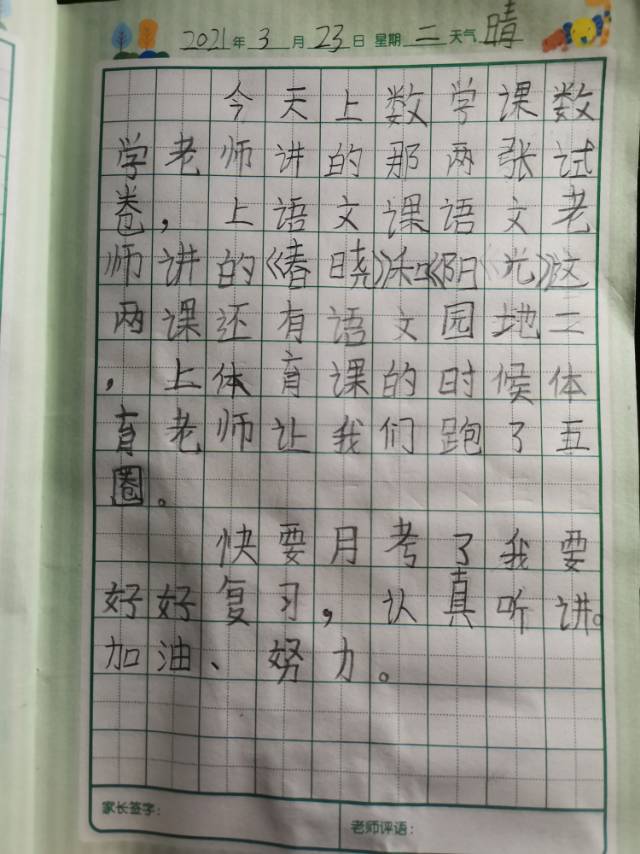 2021年3月23日 星期二天气晴
今天上数学课数
学老师讲的那两张试
卷，上语文课语文老
师讲的《春晓》和《阳光》这
两课还有语文园地二
，上体育课的时候体
育老师让我们跑了五
圈。
快要月考了我要
好好复习，认真听讲。
加油、努力。
家长签字：
老师评语：